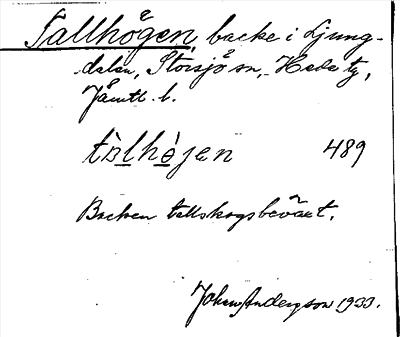 Tallhögen, backe i Ljung-
dalen, Storsjö sn, Hede tg,
Jämtl. l.
tàlhø̀jen 489
Backen tallskogsbeväxt.
Johan Andersson 1933.